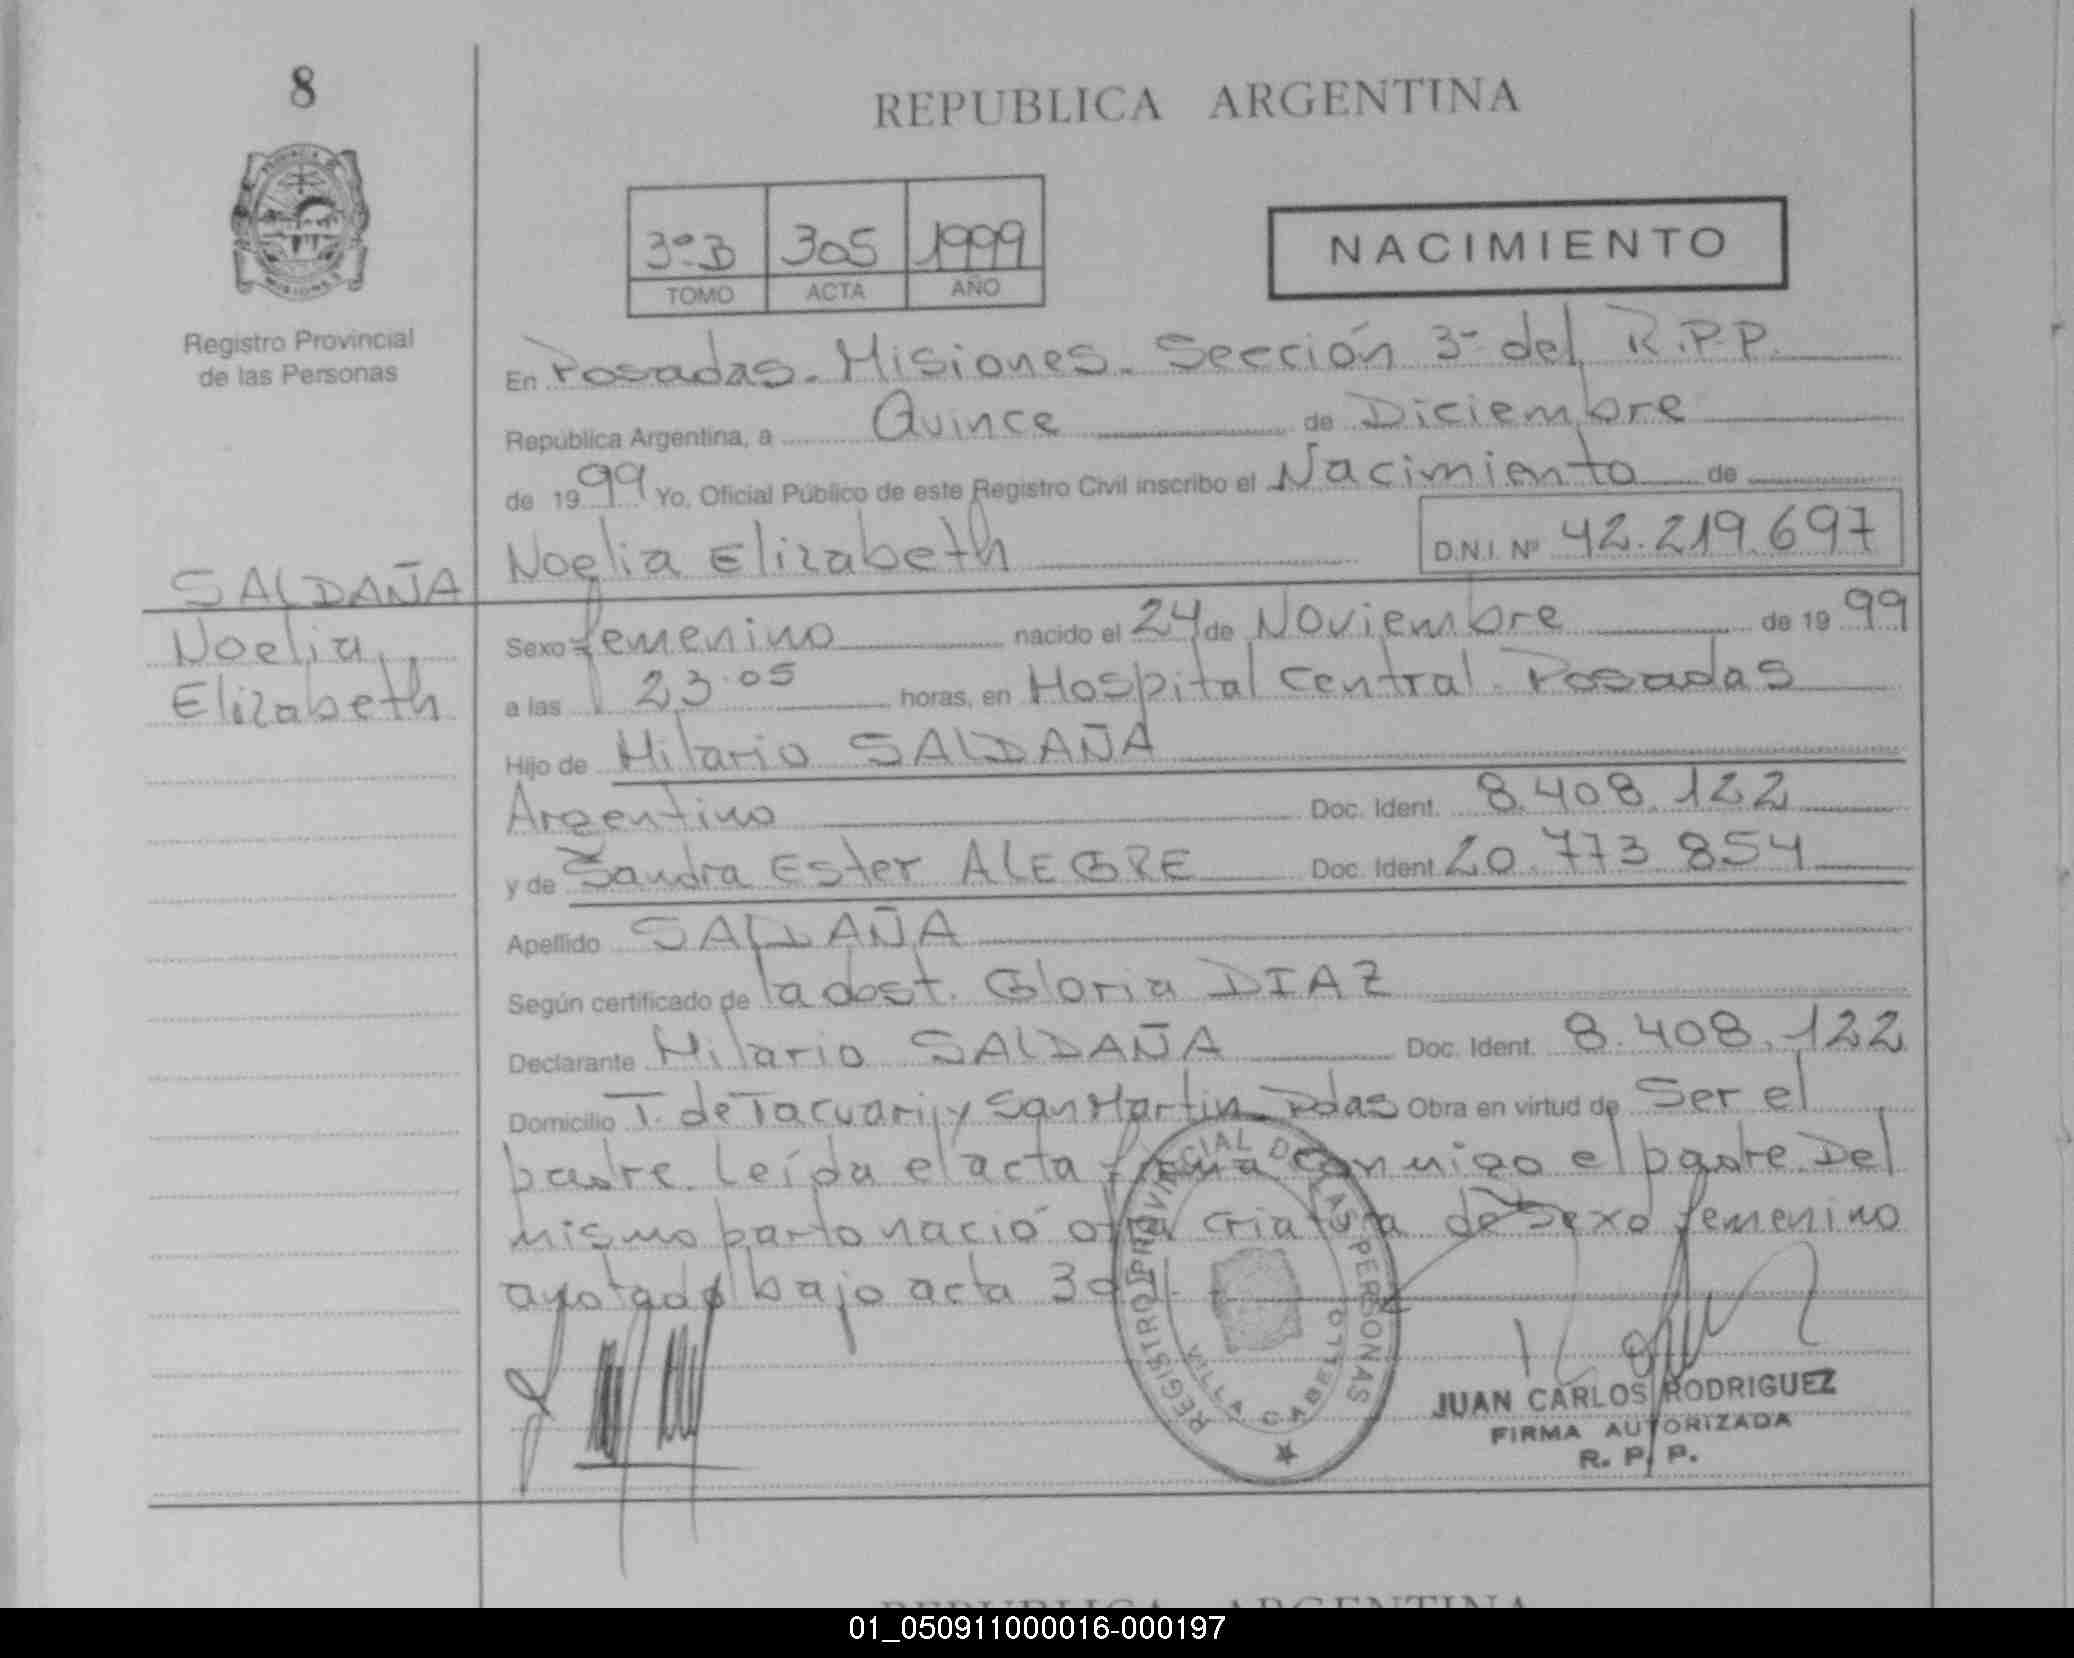 8
REPUBLICA ARGENTINA
PROVINCIA DE
MISIONES
Registro Provincial
de las Personas
3º B 305 1999
TOMO ACTA AÑO
NACIMIENTO
En Posadas. Misiones. Sección 3ª del R.P.P.
República Argentina, a Quince de Diciembre
de 1999 Yo, Oficial Público de este Registro Civil inscribo el Nacimiento de
Noelia Elizabeth D.N.I. Nº 42.219.697
SALDAÑA
Noelia
Elizabeth
Sexo femenino nacido el 24 de Noviembre de 1999
a las 23.05 horas, en Hospital Central. Posadas
Hijo de Hilario SALDAÑA
Argentino Doc. Ident. 8.408.122
y de Sandra Ester ALEGRE Doc. Ident. 20.773.854
Apellido SALDAÑA
Según certificado de la obst. Gloria DIAZ
Declarante Hilario SALDAÑA Doc. Ident. 8.408.122
Domicilio T. de Tacuari y San Martin Pdas Obra en virtud de Ser el
padre. Leída el acta firma conmigo el padre. Del
mismo parto nació otra criatura de sexo femenino
anotado bajo acta
REGISTRO PROVINCIAL DE LAS PERSONAS
VILLA CABELLO
JUAN CARLOS RODRIGUEZ
FIRMA AUTORIZADA
R. P. P.
REPUBLICA ARGENTINA
01_050911000016-000197